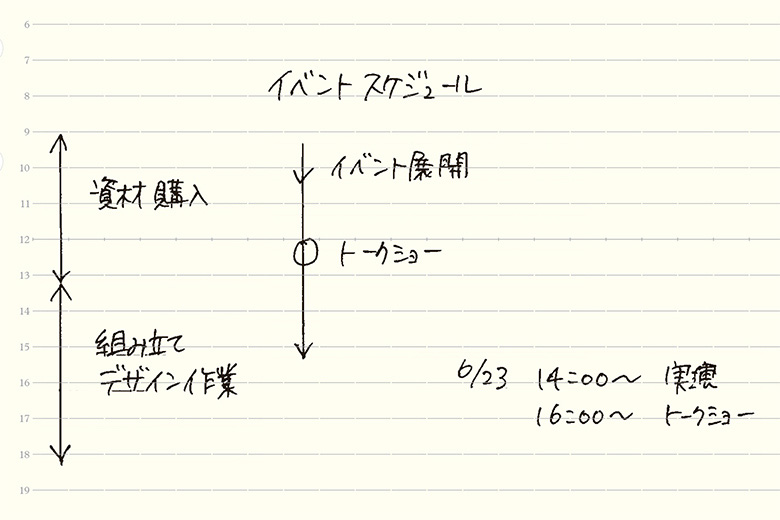 6
7
イベントスケジュール
8
9
10
イベント展開
資材購入
11
12
トークショー
13
14
組み立て
15
デザイン作業
16
6/23 14:00〜 実演
16:00〜 トークショー
17
18
19